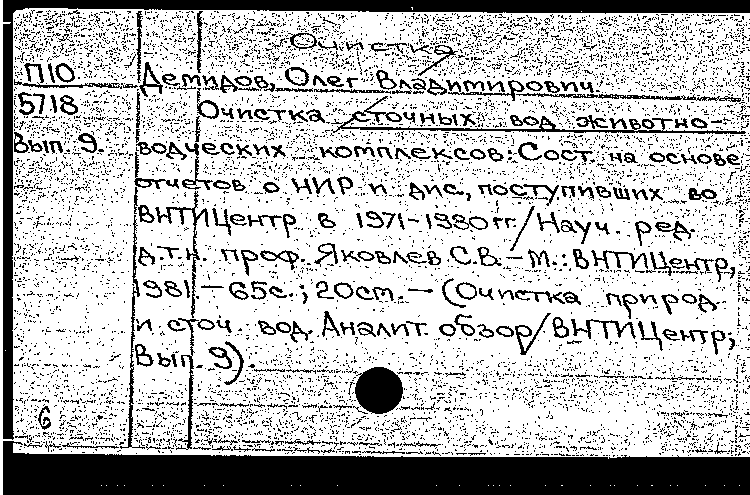 Очистка
П10
Демидов, Олег Владимирович
5718
Очистка сточных вод животно-
Вып. 9.
водческих комплексов: Сост. на основе
отчетов о НИР и дис., поступивших во
ВНТИЦентр в 1971-1980 гг. / Науч. ред.
д.т.н. проф. Яковлев С.В. - М.: ВНТИЦентр,
1981. - 65с.; 20см. - (Очистка природ.
и сточ. вод. Аналит. обзор / ВНТИЦентр;
Вып. 9).
6